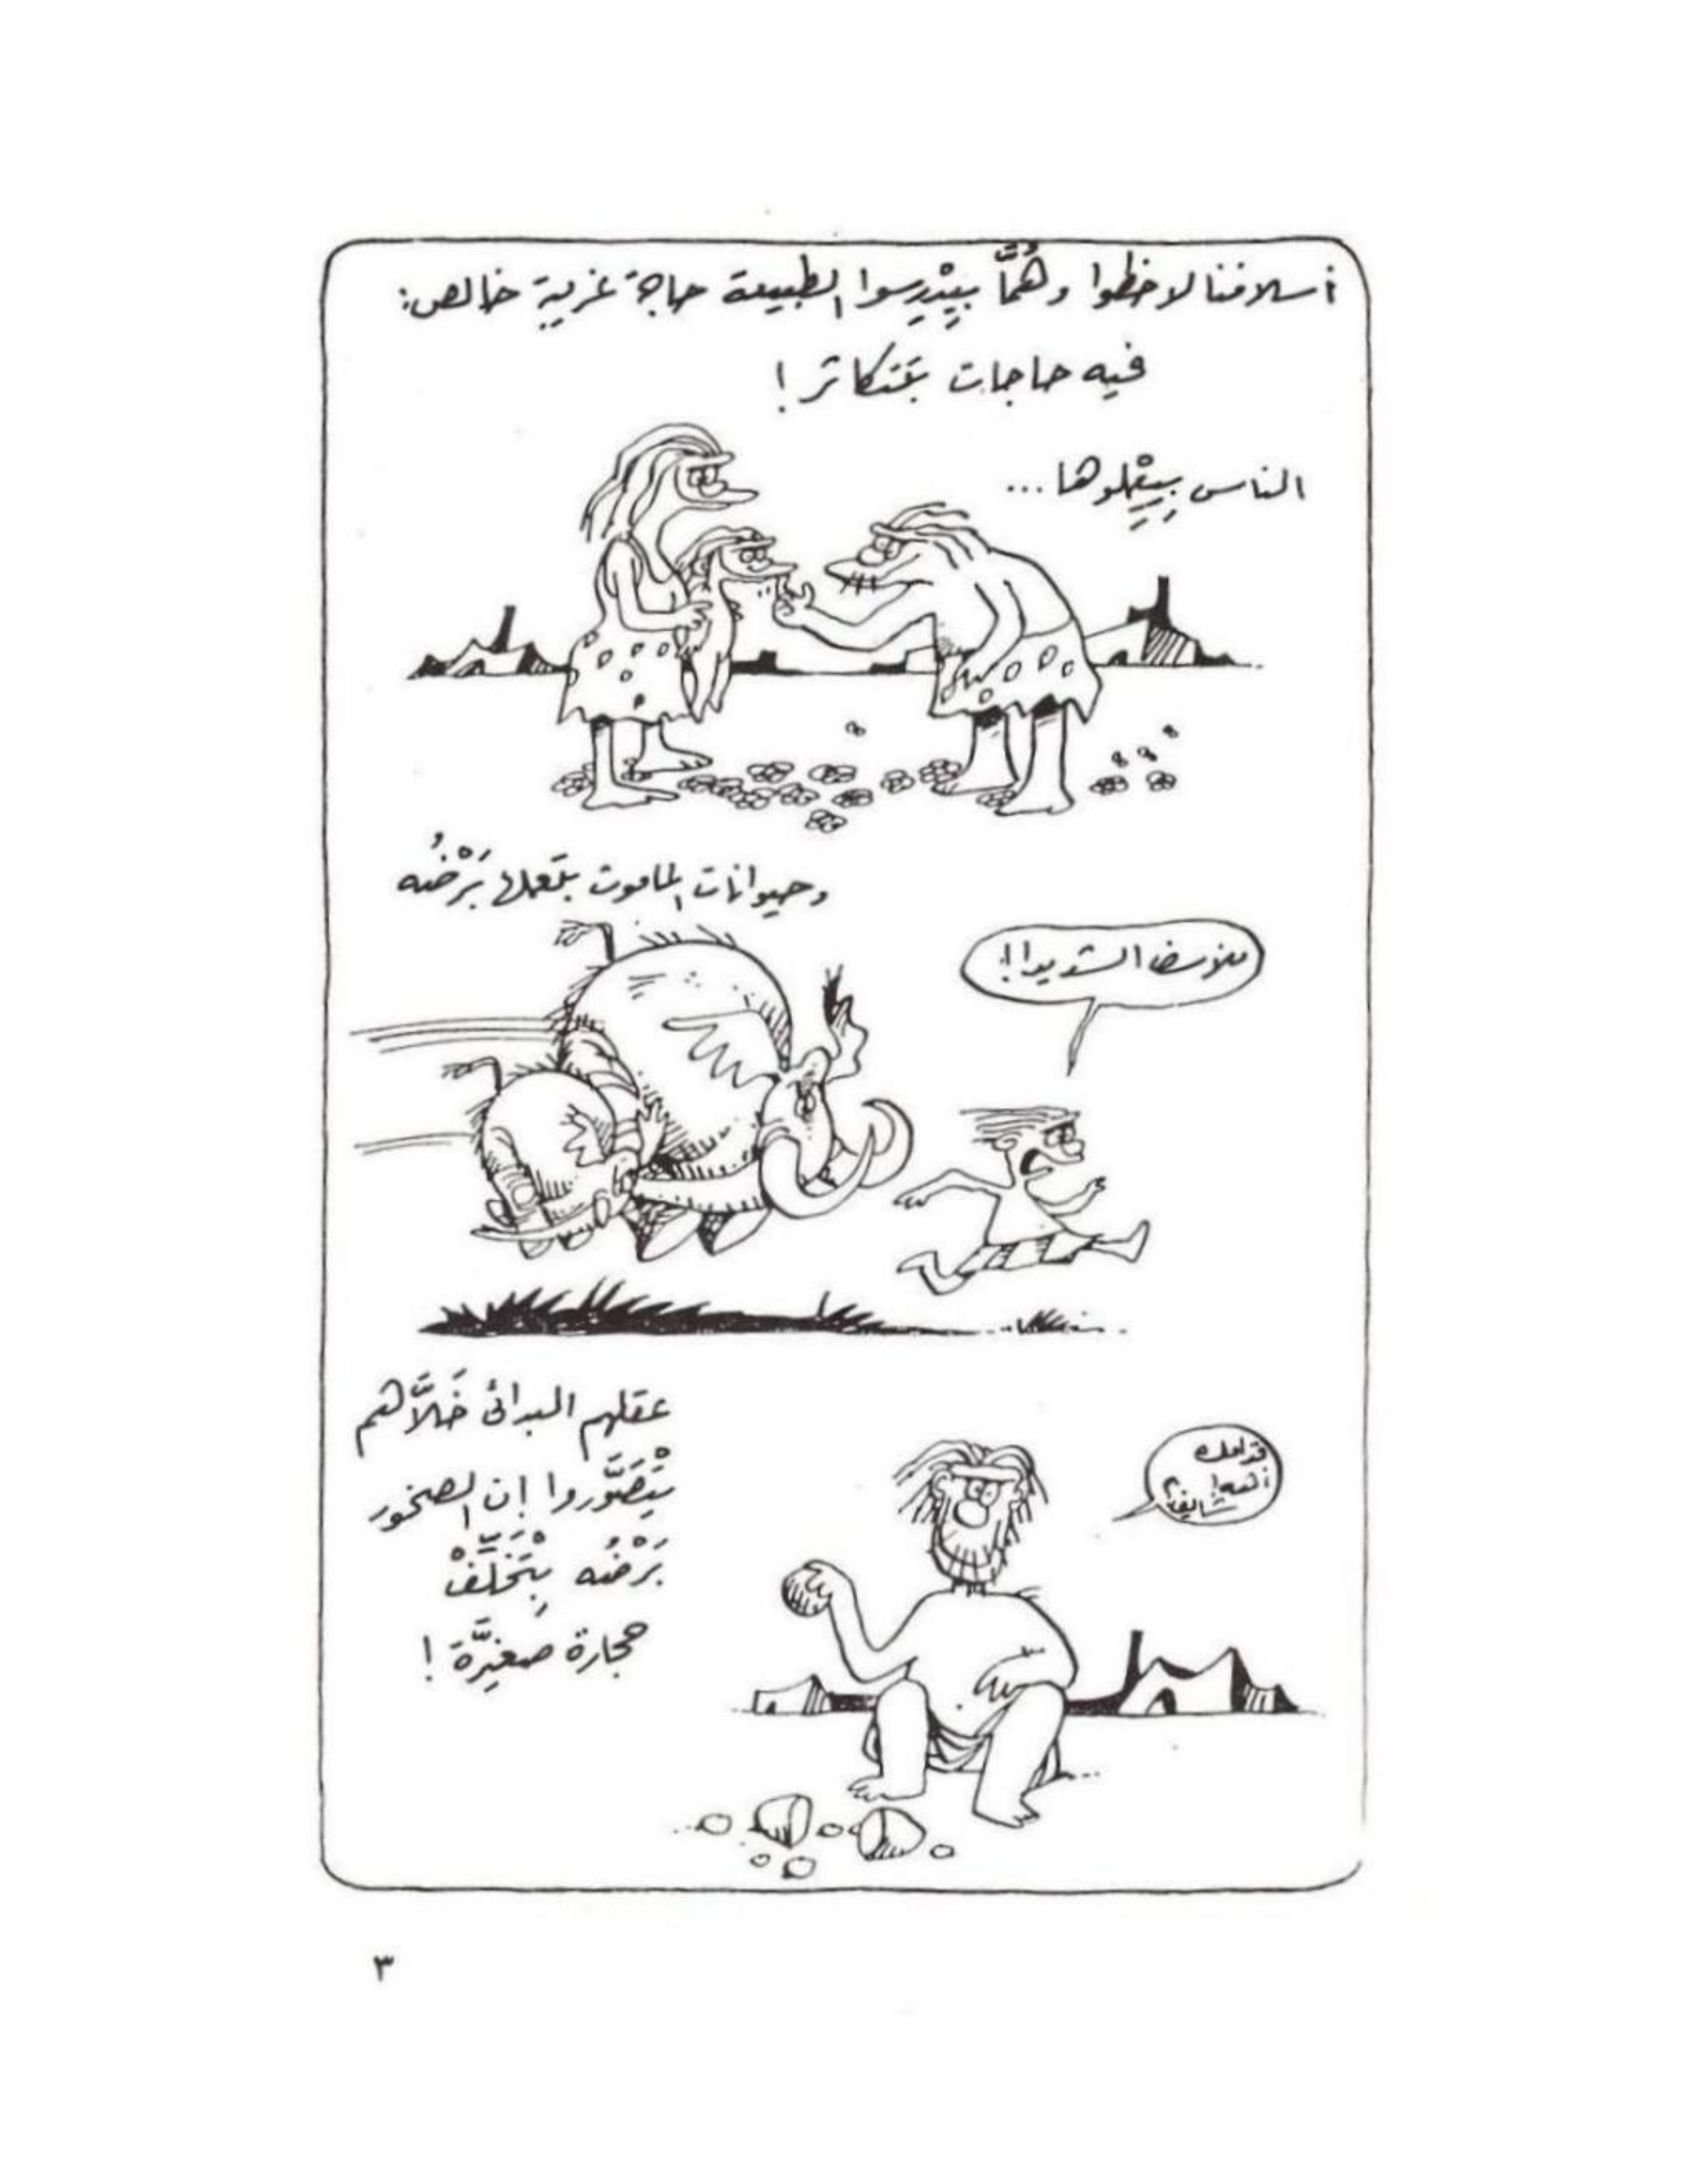 أسلافنا لاحظوا وهُمَّا بيِدْرِسوا الطبيعة حاجة غريبة خالص:
فيه حاجات بتَتكاثر!
الناس بيِعْملوها...
وحيوانات الماموث بتَعملها بَرْضُه
للأسف الشديد!!
عقلهم البدائى خَلاَّهم
يتْصَوَّروا إن الصخور
بَرْضُه بِتْخَلِّفْ
حجارة صغيَّرة!
٣